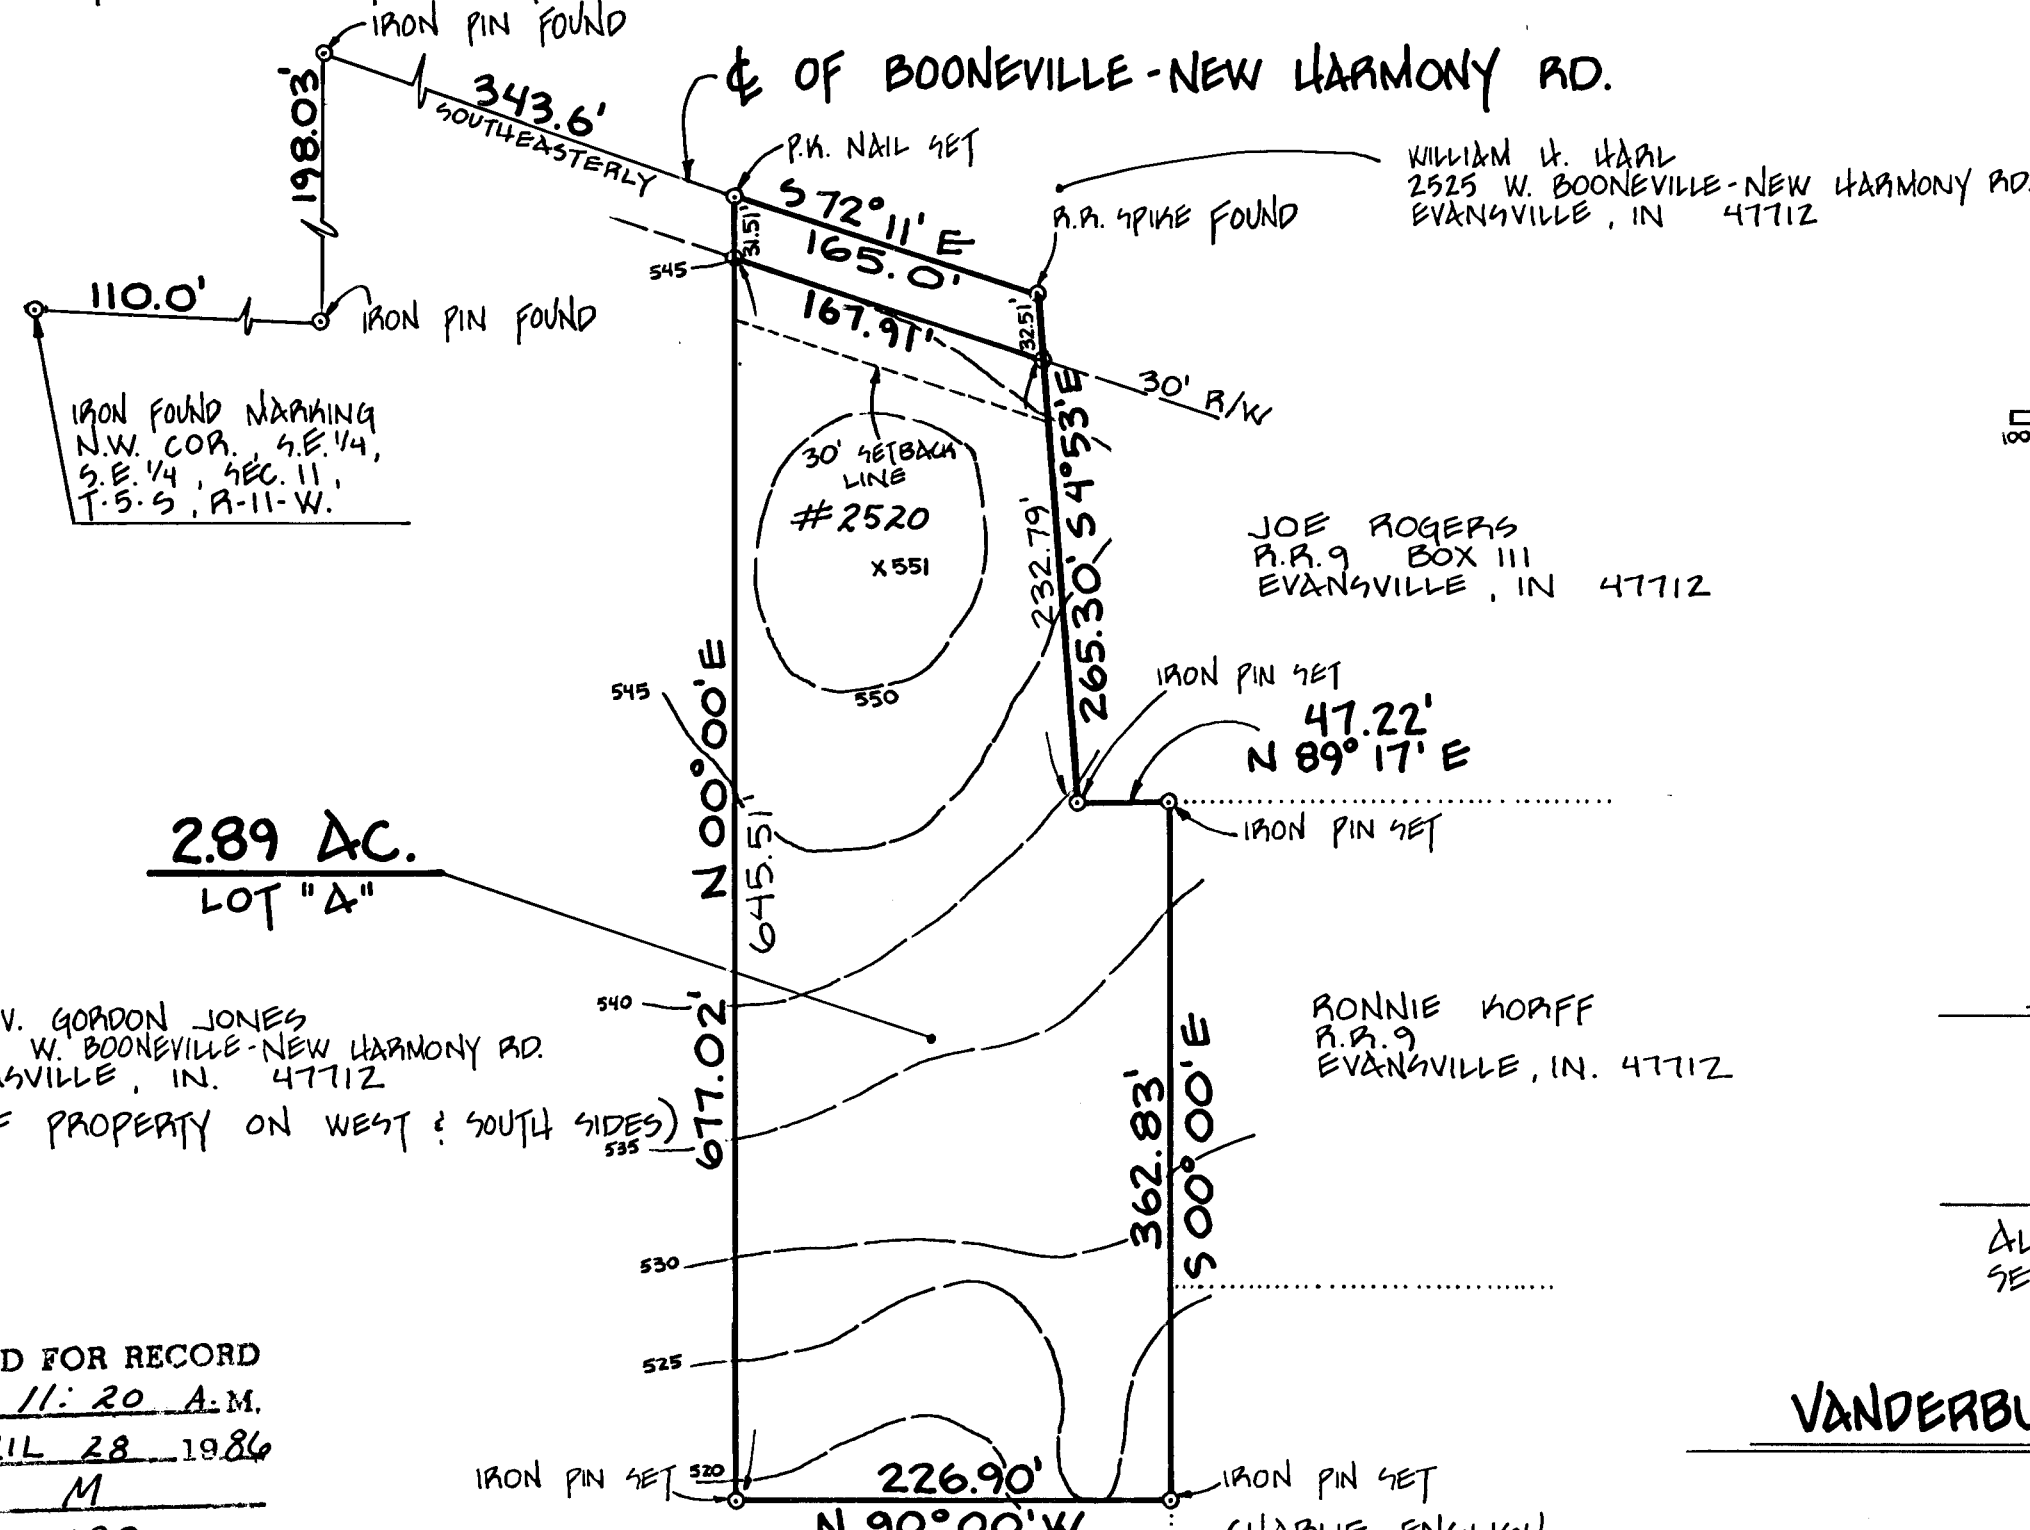 IRON PIN FOUND
℄ OF BOONEVILLE-NEW HARMONY RD.
198.03'
343.6'
SOUTHEASTERLY
P.K. NAIL SET
WILLIAM H. HARL
2525 W. BOONEVILLE-NEW HARMONY RD.
EVANSVILLE, IN 47712
S 72° 11' E
165.0'
R.R. SPIKE FOUND
31.51'
545
110.0'
IRON PIN FOUND
167.91'
32.51'
30' R/W
IRON FOUND MARKING
N.W. COR., S.E. 1/4,
S.E. 1/4, SEC. 11,
T-5-S, R-11-W.
30' SETBACK
LINE
#2520
X 551
550
232.79'
265.30' S 4° 53' E
JOE ROGERS
R.R. 9 BOX 111
EVANSVILLE, IN 47712
545
IRON PIN SET
47.22'
N 89° 17' E
IRON PIN SET
N 00° 00' E
645.51'
677.02'
2.89 AC.
LOT "A"
540
V. GORDON JONES
W. BOONEVILLE-NEW HARMONY RD.
SVILLE, IN. 47712
PROPERTY ON WEST & SOUTH SIDES)
535
RONNIE KORFF
R.R. 9
EVANSVILLE, IN. 47712
362.83'
S 00° 00' E
530
525
D FOR RECORD
11:20 A.M.
IL 28 1986
M
VANDERBU
IRON PIN SET
520
226.90'
N 90° 00' W
IRON PIN SET
CHARLIE ENGLISH